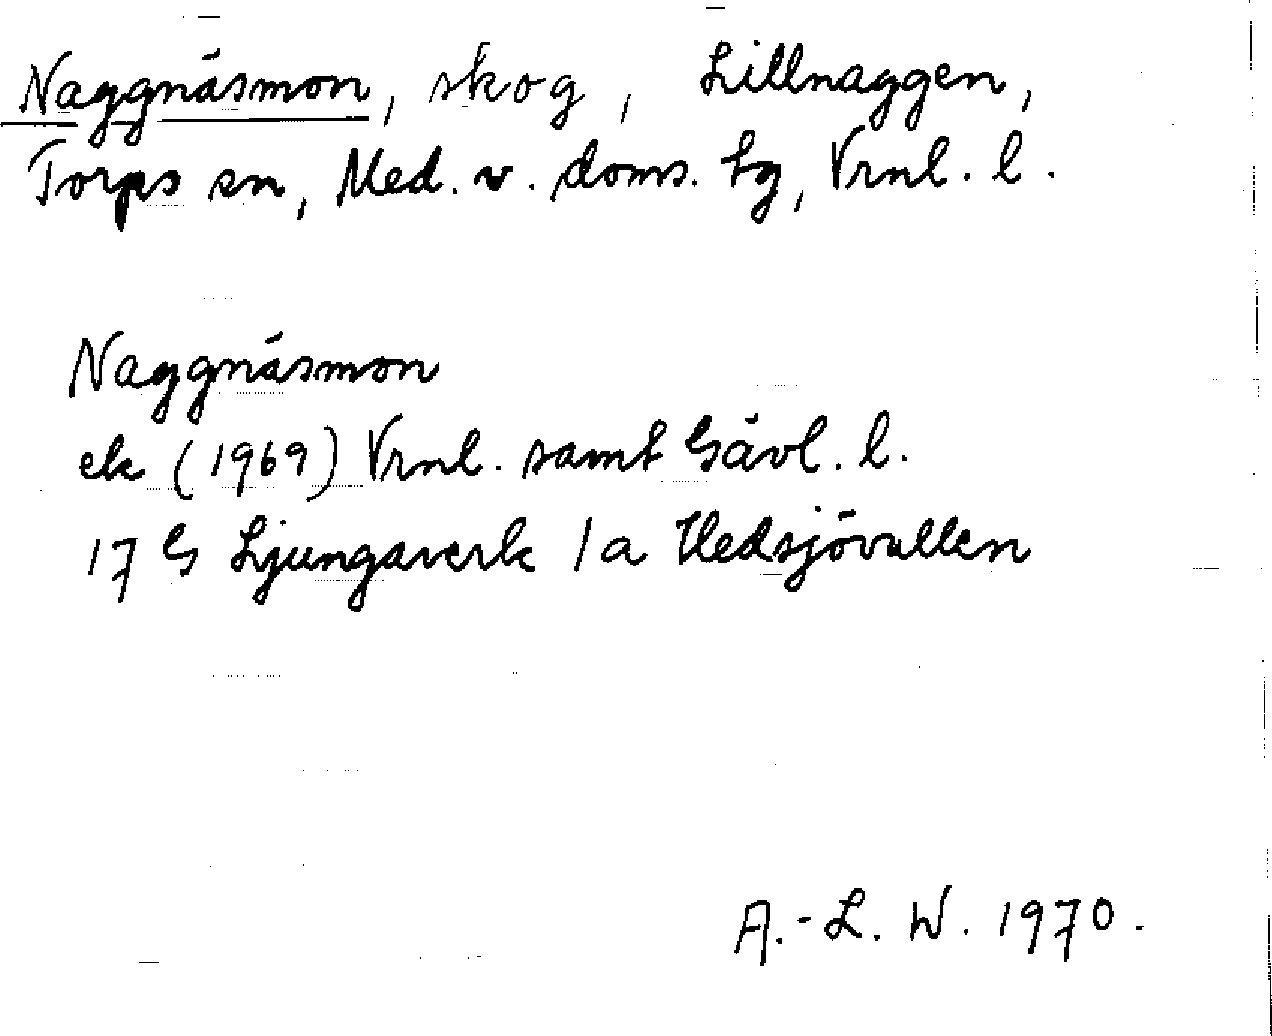 Naggnäsmon, skog, Lillnaggen,
Torps sn, Med. v. doms. tg, Vrnl. l.
Naggnäsmon
ek (1969) Vrnl. samt Gävl. l.
17 G Ljungaverk 1a Hedsjövallen
A.-L. W. 1970.